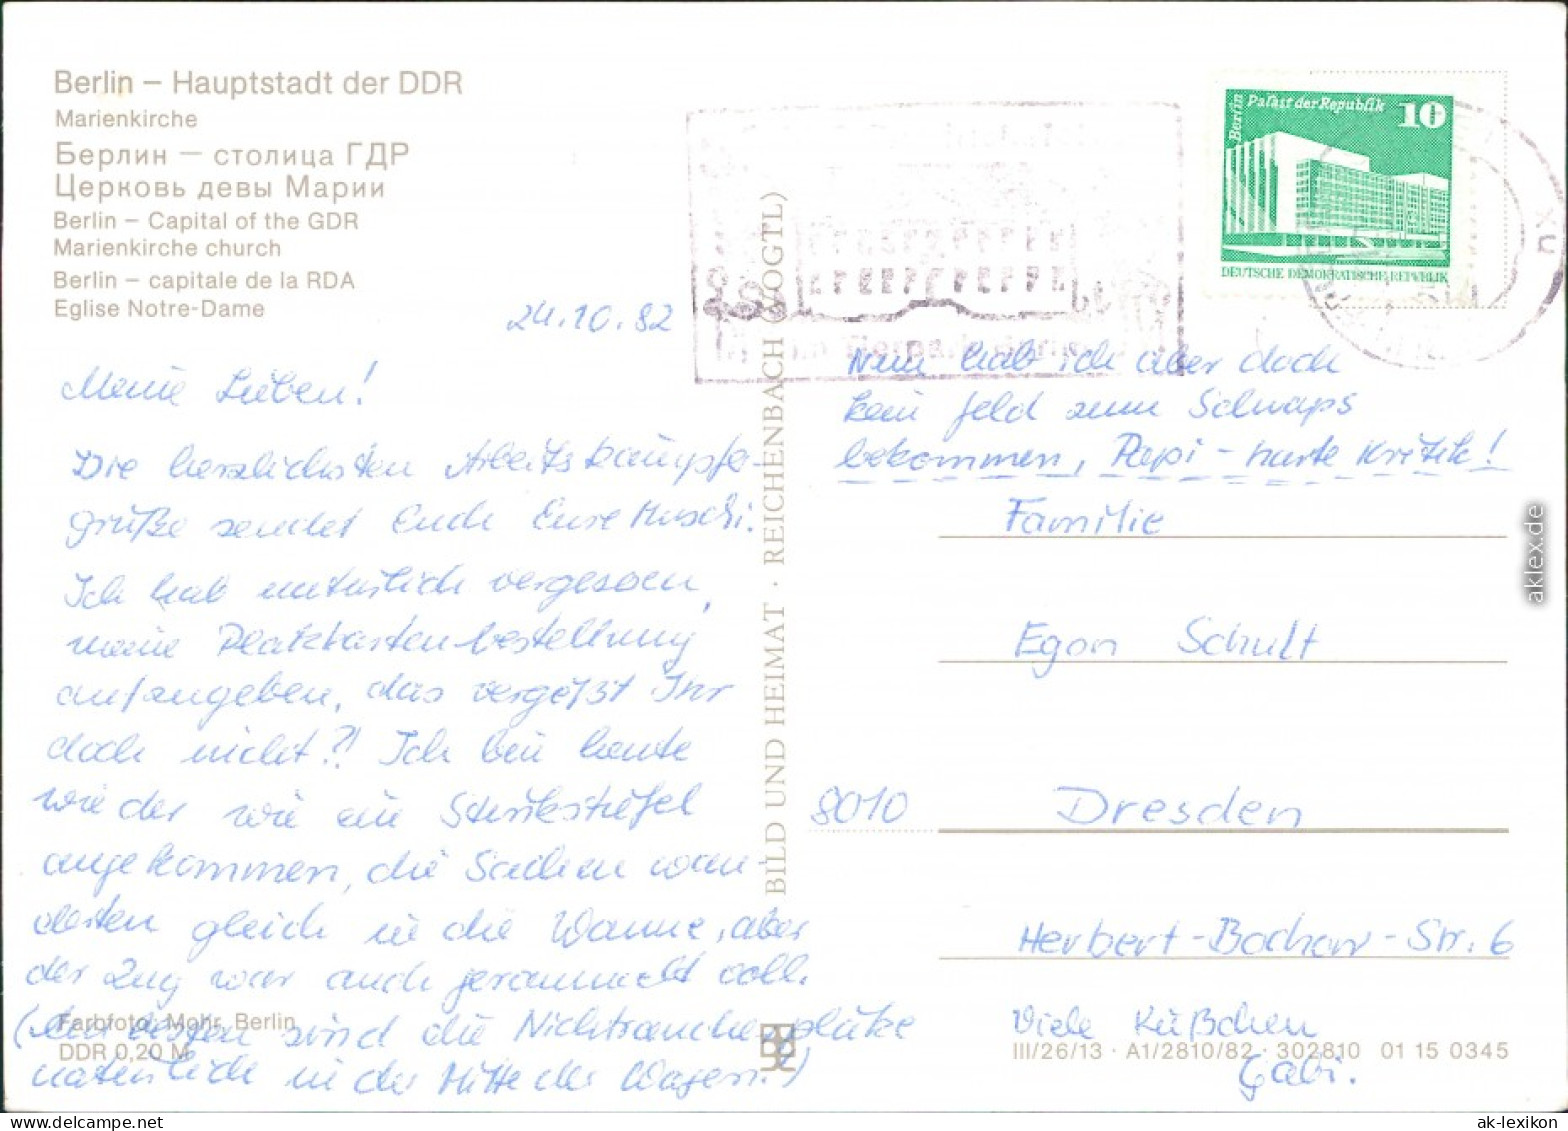 Berlin – Hauptstadt der DDR
Marienkirche
Берлин – столица ГДР
Церковь девы Марии
Berlin – Capital of the GDR
Marienkirche church
Berlin – capitale de la RDA
Eglise Notre-Dame
24.10.82
Meine Lieben!
Die herzlichsten Arbeitskampfe-
grüße sendet Euch Eure Muschi.
Ich hab natürlich vergessen,
meine Platzkartenbestellung
aufzugeben, das vergeßt Ihr
doch nicht?! Ich bin heute
wieder wie ein Stinkstiefel
angekommen, die Sachen wan-
derten gleich in die Wanne, aber
der Zug war auch gerammelt voll.
sind die Nichtraucherplätze
natürlich in der Mitte der Wagen.)
Farbfoto: Mohr, Berlin
DDR 0,20 M
BILD UND HEIMAT · REICHENBACH (VOGTL)
Berlin Palast der Republik 10
DEUTSCHE DEMOKRATISCHE REPUBLIK
Nun hab ich aber doch
kein Geld zum Schnaps
bekommen, Papi – harte Kritik!
Familie
Egon Schult
8010 Dresden
Herbert-Bochow-Str. 6
Viele Küßchen
Gabi.
III/26/13 · A1/2810/82 · 302810 01 15 0345
aklex.de
ak-lexikon